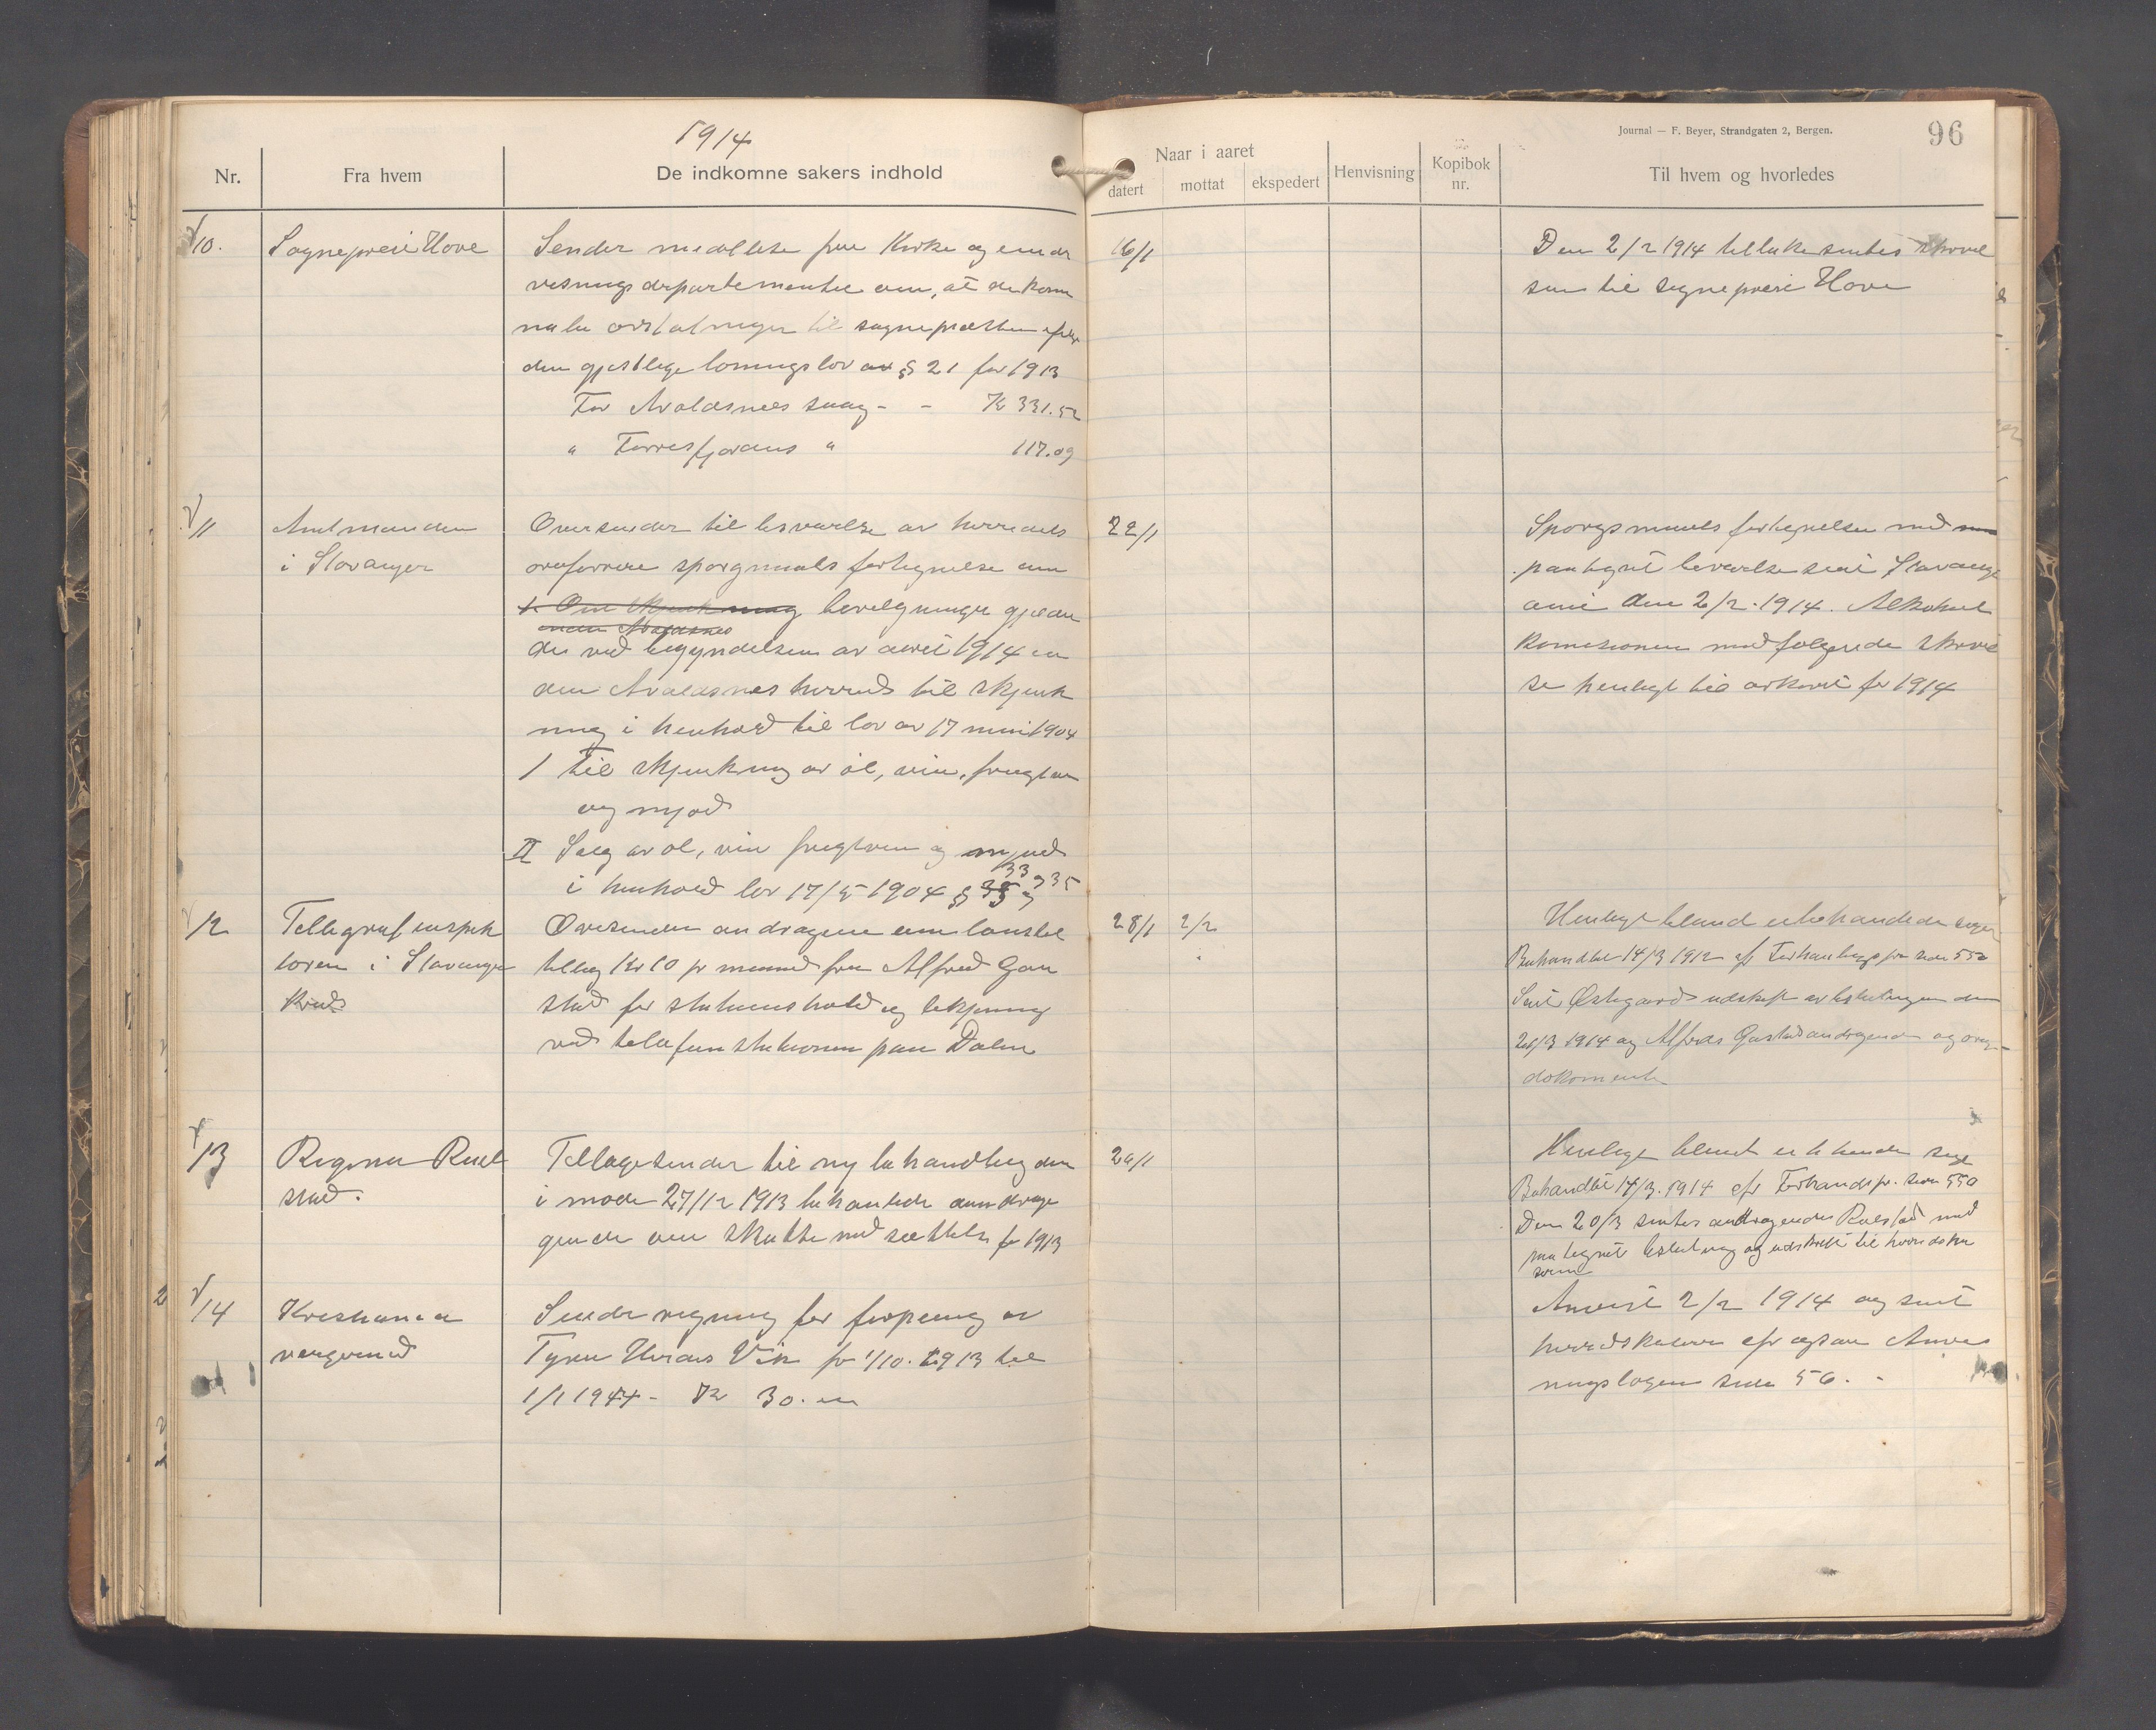 1914
Journal — F. Beyer, Strandgaten 2, Bergen.
96
Nr.
Fra hvem
De indkomne sakers indhold
Naar i aaret
datert
mottat
ekspedert
Henvisning
Kopibok nr.
Til hvem og hvorledes
10.
Sogneprest Hove
Sender meddelse fra Kirke og under
visnings departementet om, at de komu
nale til sogneprætten efter
den gjestlige lønnings lov av § 21 for 1913
For Avaldsnes sogn - - Kr 331.52
" Førresfjordens " 117.09
16/1
Den 2/2 1914 tilbakesentes skrivel
sen til sogneprest Hove
11
Amtmanden
i Stavanger
Oversender til besvarelse av herreds
ordførere spørgmaals fortegnelse om
bevilgninger gjælden
de ved begyndelsen av aaret 1914 in
den Avaldsnes herred til skjenk
ning i henhold til lov av 17 mai 1904
1 Til skjenkning av øl, vin, frugtvin
og mjød
II Salg av øl, vin frugtvin og mjød
i henhold lov 17/5 1904 § 33 og 35
22/1
Spørgsmaals fortegnelsen med
paategnet besvarelse sent Stavanger
amt den 2/2. 1914. Alkohol
komisionen medfølgende skrivel
se henlagt til arkivet for 1914
12
Tellegraf inspek
tøren i Stavanger
Kreds
Oversender andragene om lønstil
tilleg Kr 10 pr maaned fra Alfred Gau
stad for stationshold og betjening
ved telefonstationen paa Dalen
28/1
2/2
Henlagt bland ubehandlede sager
Behandlet 14/3 1912 efr Forhandlings pr side 550
Sent Østegaard udskrift av beslutningen den
21/3 1914 og Alfreds Gaustad andragende og
dokomenter
13
Regina Ruel
stad.
Tilbagesender til ny behandling den
i møde 27/12 1913 behandlede andrage
gende om skatte nedsættelse for 1913
24/1
Henlagt blandt sage
Behandlet 14/3. 1914 efr Forhandspr. side 550
Den 20/3 sentes andragende Ruelstad med
paategnet beslutning og udskrift til herredska
seren
14
Kristiania
vergeraad
Sender regning for forpleining av
Vik fra 1/10. 1913 til
1/1 1914 - Kr 30.00
Anvist 2/2 1914 og sent
herredskaseren efr ogsaa Anvis
ningsbogen side 56.